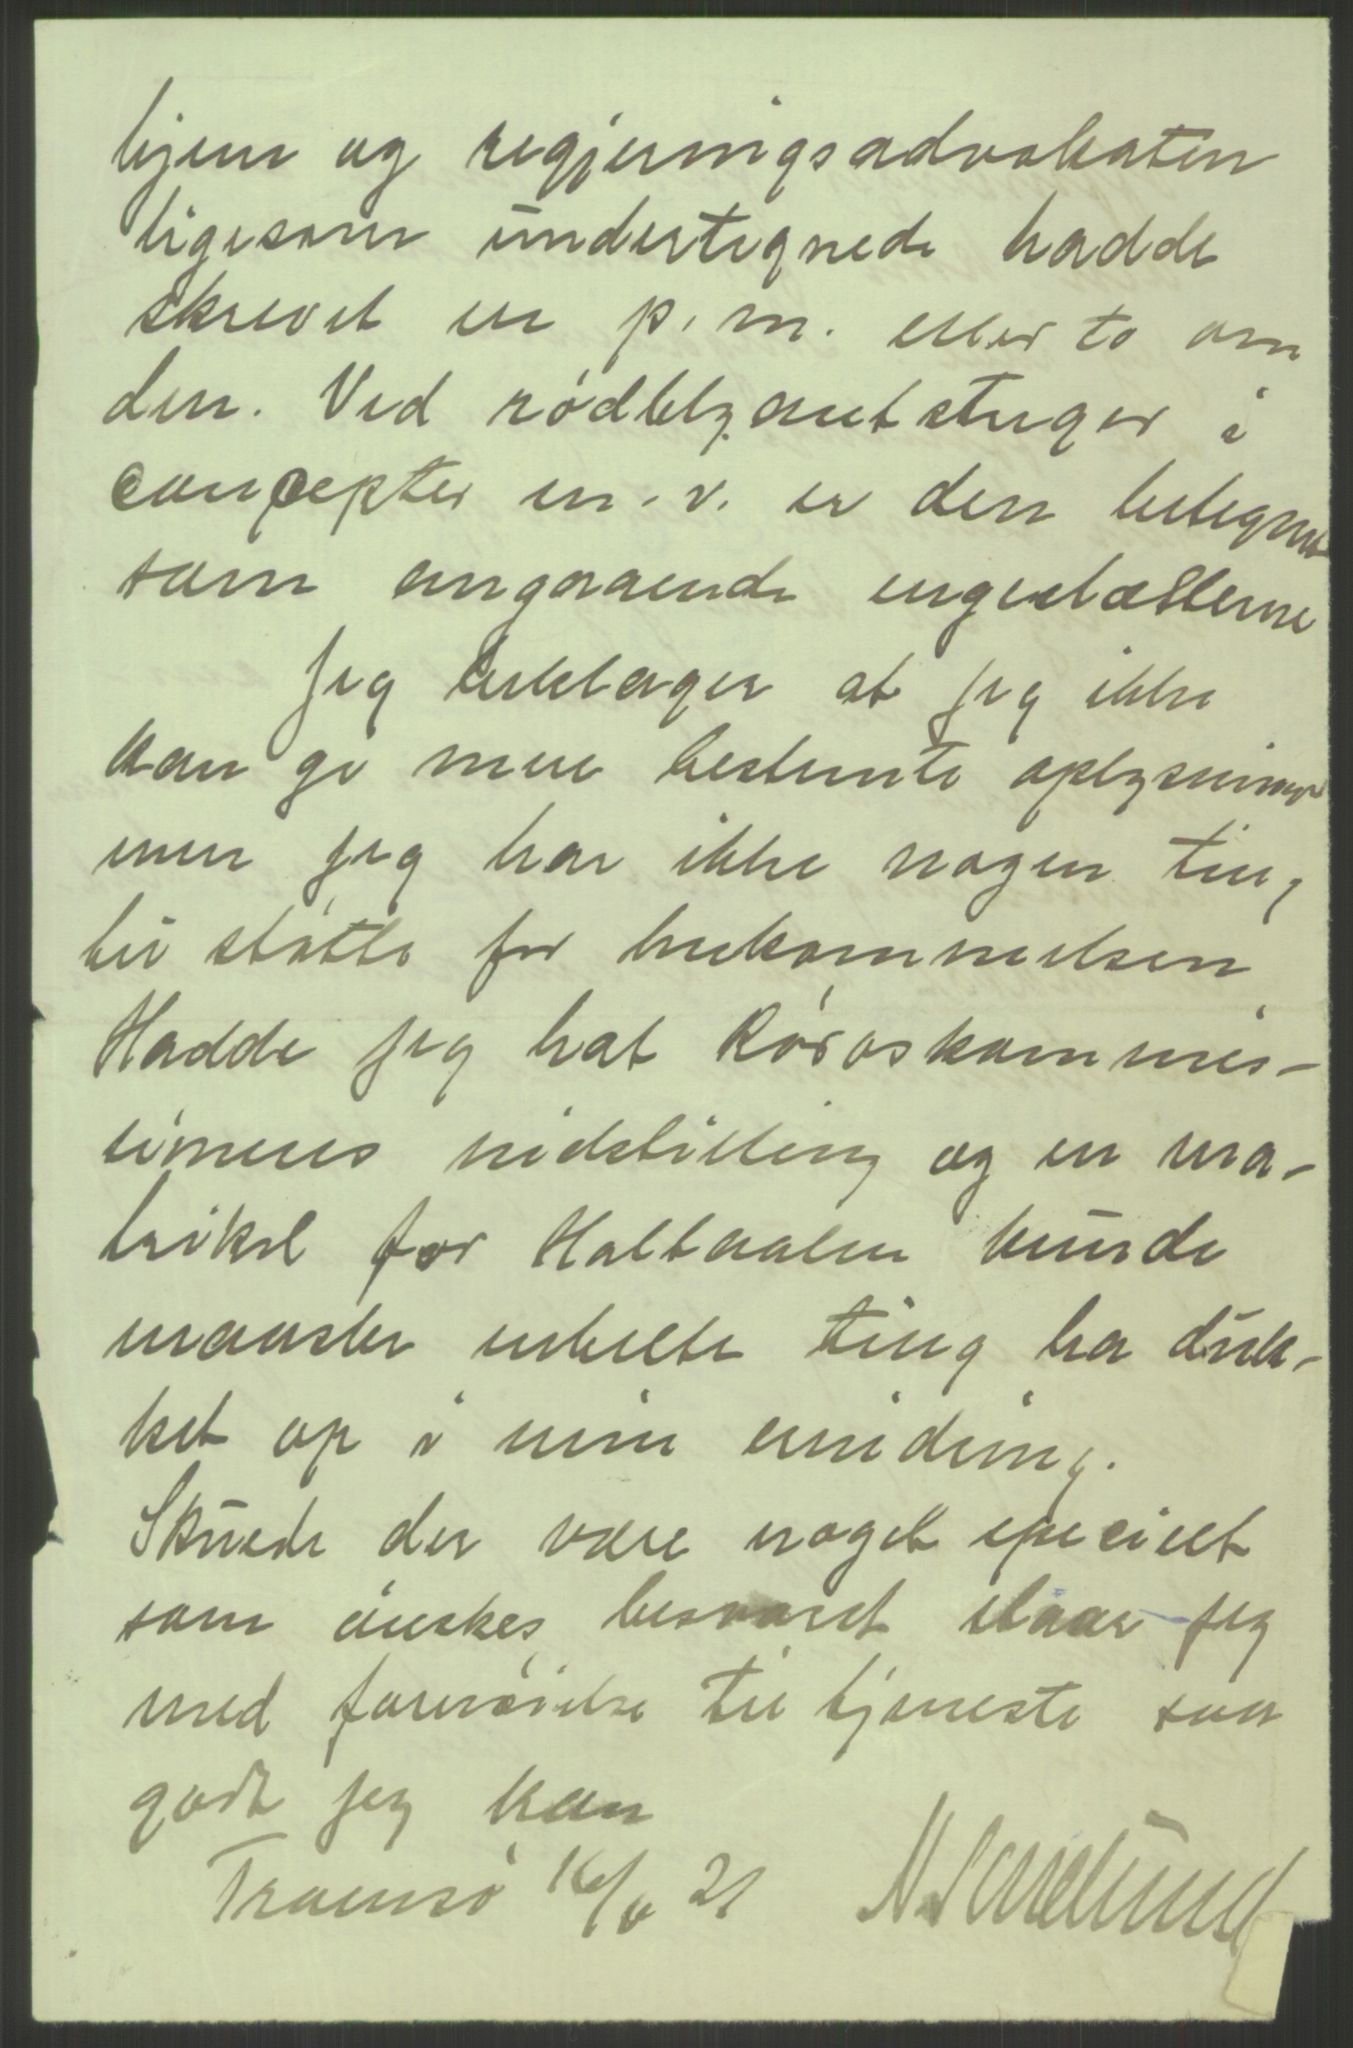 hjem og regjeringsadvokaten
ligesom undertegnede hadde
skrevet en p. m. eller to om
den. Ved rødblyantstreger i
concepter m. v. er den betegnet
som angaaende engeslætterne
Jeg beklager at jeg ikke
kan gi mere bestemte oplysninger
men jeg har ikke nogen ting
til støtte for hukommelsen
Hadde jeg hat Røroskommis-
sionens indstilling og en ma-
trikel for Holtaalen kunde
maaske enkelte ting ha duk-
ket op i min erindring.
Skulde der være noget specielt
som ønskes besvaret staar jeg
med fornøielse til tjeneste saa
godt jeg kan
Tromsø 16/ 21